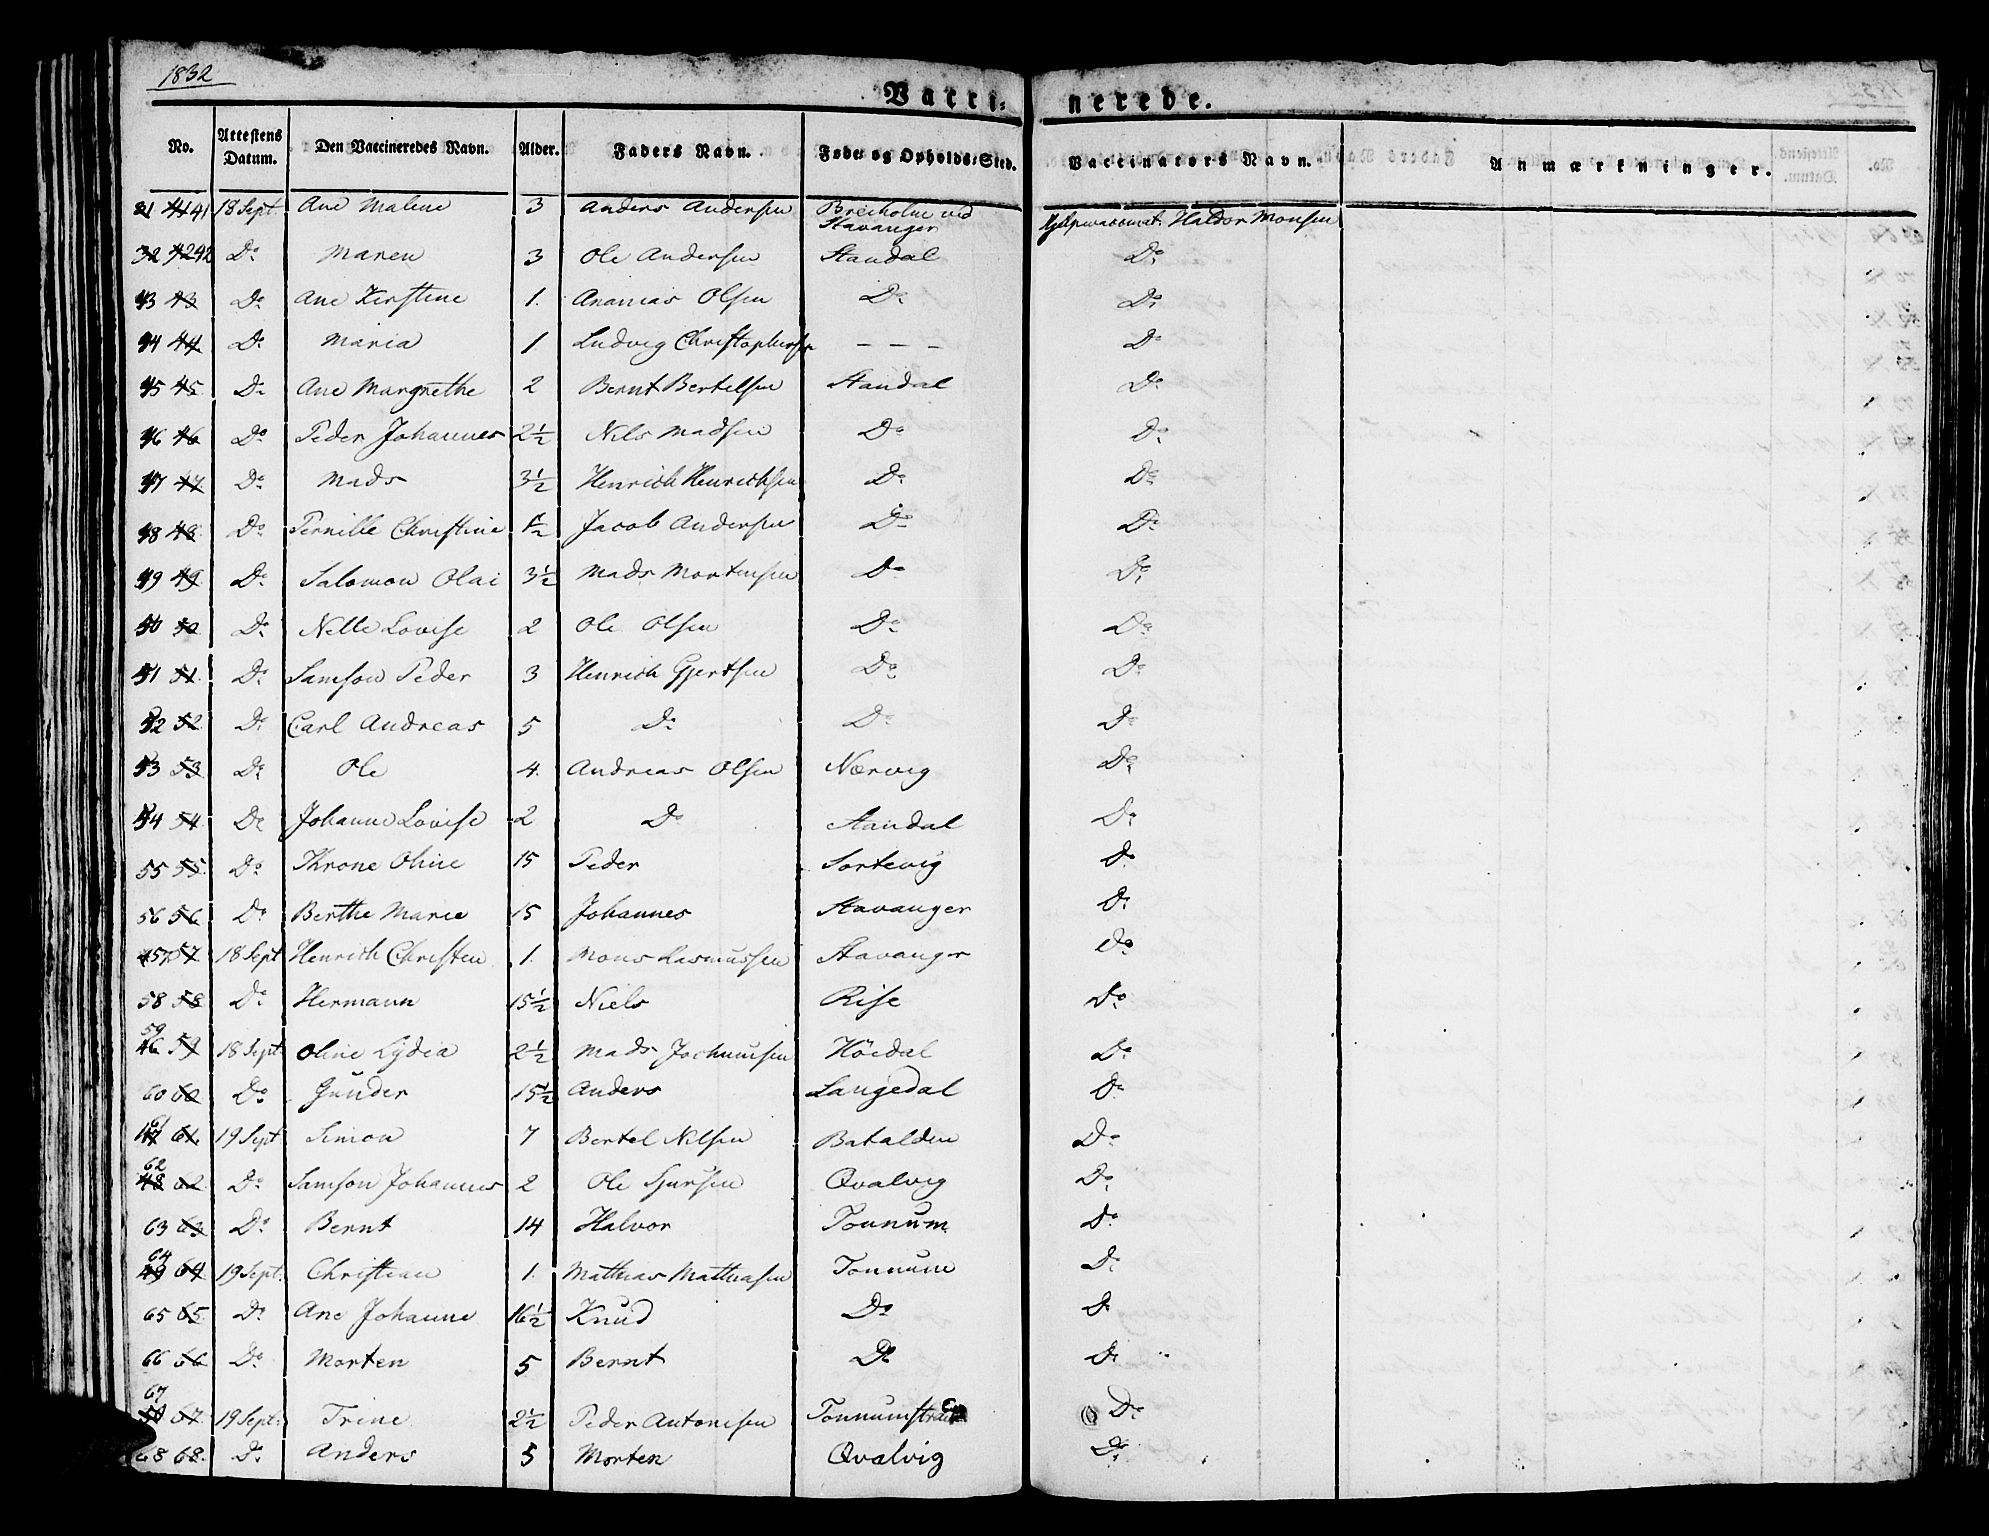 1832
Vacci-nerede.
No. Attestens Datum. Den Vaccineredes Navn. Alder. Faders Navn. Føde og Opholds-Sted. Vaccinators Navn. Anmærkninger.
41 18 Sept. Ane Malene 3 Anders Andersen Breiholm ved Stavanger Hjelpevaccinat. Haldor Monsen
42 Do Maren 3 Ole Andersen Standal Do
43 43 Do Ane Kirstine 1. Ananias Olsen Do Do
44 44 Do Maria 1 Ludvig Christophersen - - - Do
45 45 Do Ane Margrethe 2 Bernt Bertelsen Standal Do
46 46 Do Peder Johannes 2½ Nils Madsen Do Do
47 47 Do Mads 3½ Henrich Henrichsen Do Do
48 48 Do Pernille Christine ½ Jacob Andersen Do Do
49 49 Do Salomon Olai 3½ Mads Mortensen Do Do
50 50 Do Nelle Lovise 2 Ole Olsen Do Do
51 51 Do Samson Peder 3 Henrich Gjertsen Do Do
52 52 Do Carl Andreas 5 Do Do Do
53 53 Do Ole 4. Andreas Olsen Nærvig Do
54 54 Do Johanne Lovise 2 Do Standal Do
55 55 Do Throne Oline 15 Peder Sortevig Do
56 56 Do Berthe Marie 15 Johannes Stavanger Do
57 57 18 Sept Henrich Christen 1. Mons Rasmussen Stavanger Do
58 58 Do Hermann 15½ Niels Rise Do
59 46 59 18 Sept. Oline Lydia 2½ Mads Jochumsen Höidal Do
60 60 Do Gunder 15½ Anders Langedal Do
61 47 61 19 Sept Simon 7 Bertel Nilsen Batalden Do
62 48 62 Do Samson Johannes 2 Ole Sjursen Qvalvig Do
63 63 Do Bernt 14 Halvor Tonnum Do
64 49 64 19 Sept. Christian 1. Mathias Mathiasen Tonnum Do
65 65 Do Ane Johanne 16½ Knud Do Do
66 66 Do Morten 5 Bernt Do Do
67 50 67 19 Sept. Trine 2½ Peder Antonisen Do
68 68. Do Anders 5 Morten Qvalvig Do